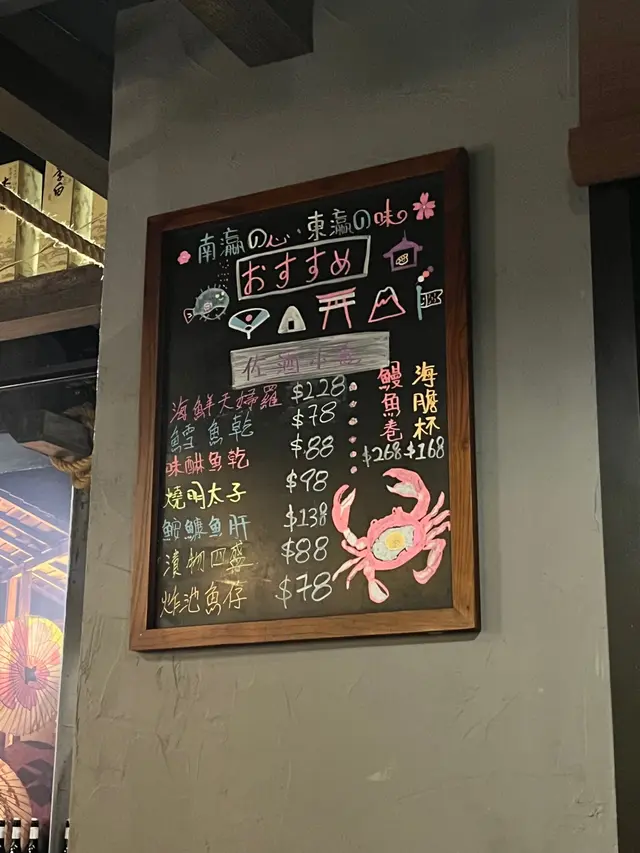 南瀛の心、東瀛の味
おすすめ
佐酒小魚
海鮮天婦羅 $228
鱈魚乾 $78
味醂魚乾 $88
燒明太子 $98
鮟鱇魚肝 $138
漬物四盛 $88
炸池魚仔 $78
鰻魚卷 $268
海膽杯 $168